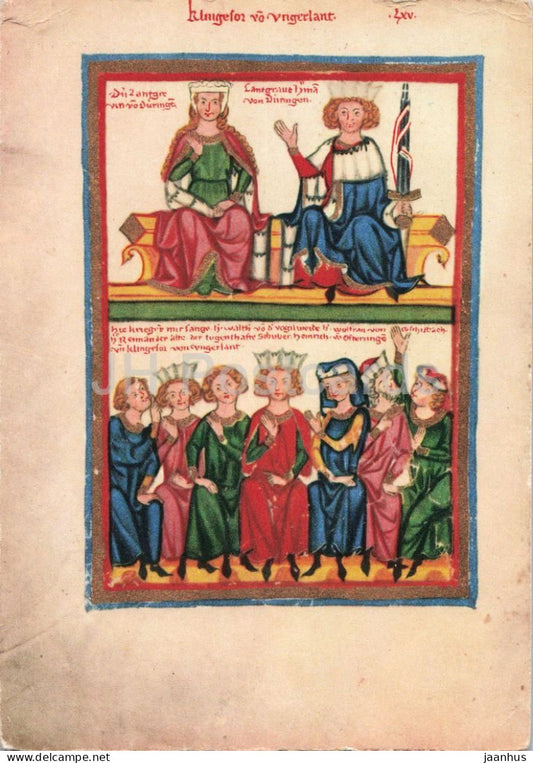 klingesor võ vngerlant.
.lxv.
Dú lantgre
vin võ dúringē
Lantgraue hˀmā
von Dúringen.
Hie kriegēt mit sange hˀ walthˀ võ dˀ vogilweide hˀ wolfran von eschilbach.
hˀ Reinman der alte. der tugenthafte Schriber. Heinrich. võ Ofteringē
vñ klingesor von vngerlant.
JH Postcards
jaanhus